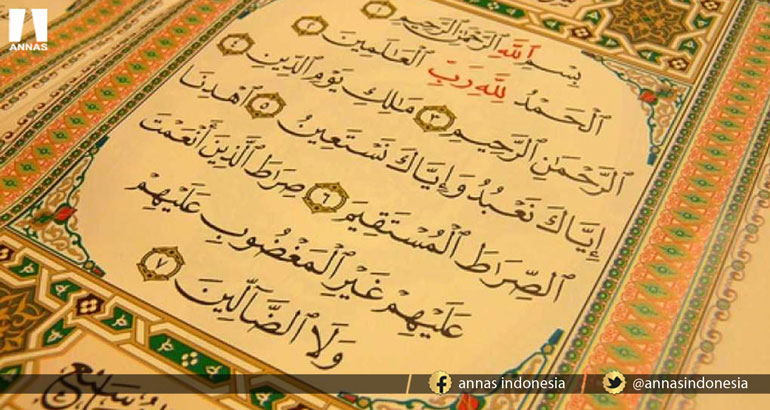 ANNAS
بِسْمِ ٱللَّهِ ٱلرَّحْمَٰنِ ٱلرَّحِيمِ ١
ٱلْحَمْدُ لِلَّهِ رَبِّ ٱلْعَٰلَمِينَ ٢
ٱلرَّحْمَٰنِ ٱلرَّحِيمِ ٣ مَٰلِكِ يَوْمِ ٱلدِّينِ ٤
إِيَّاكَ نَعْبُدُ وَإِيَّاكَ نَسْتَعِينُ ٥ ٱهْدِنَا
ٱلصِّرَٰطَ ٱلْمُسْتَقِيمَ ٦ صِرَٰطَ ٱلَّذِينَ أَنْعَمْتَ
عَلَيْهِمْ غَيْرِ ٱلْمَغْضُوبِ عَلَيْهِمْ
وَلَا ٱلضَّآلِّينَ ٧
annas indonesia @annasindonesia